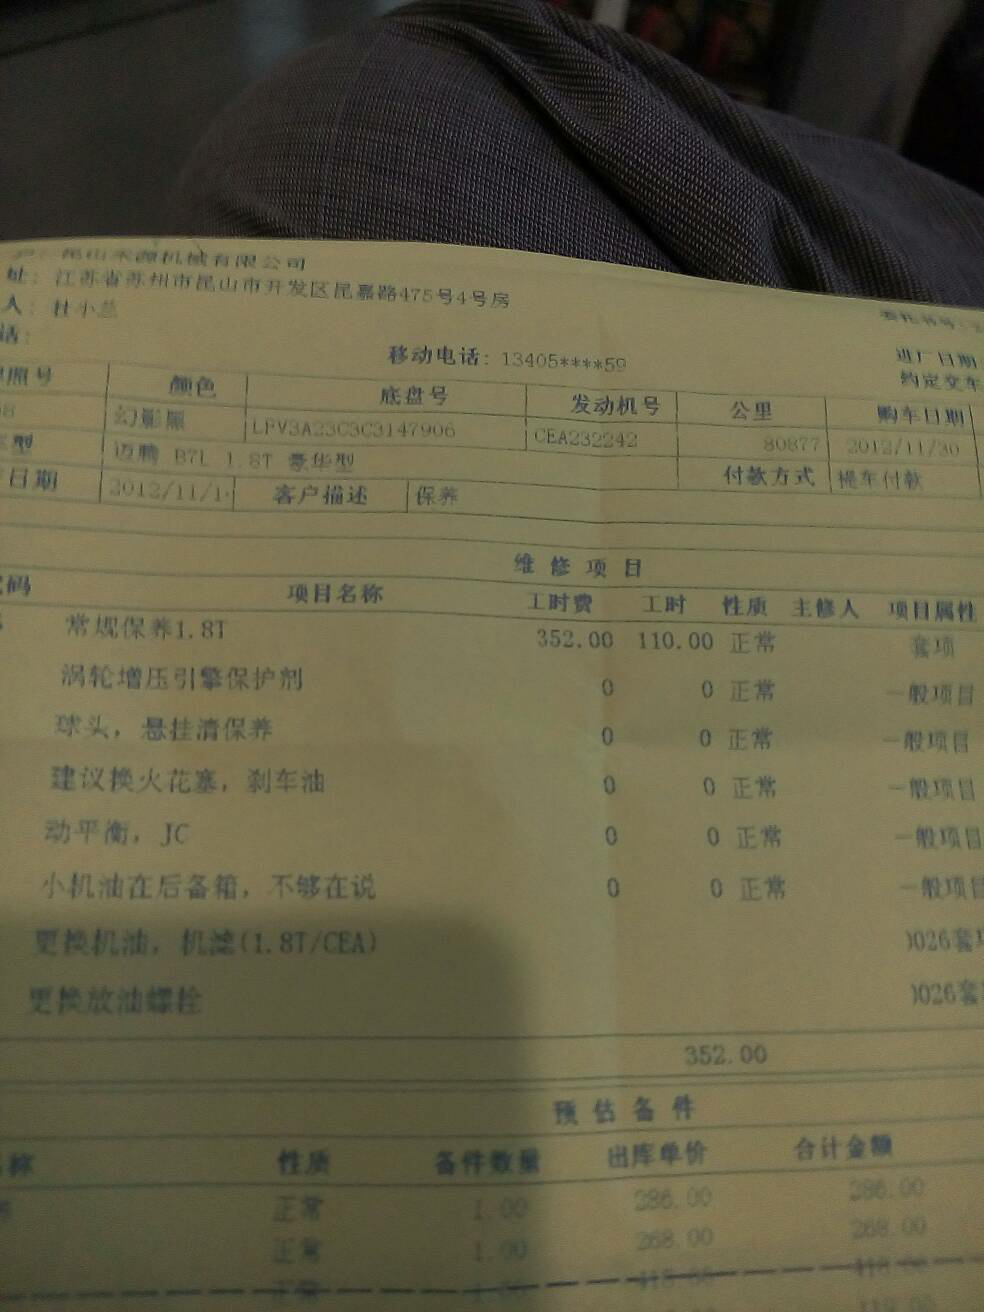 昆山禾源机械有限公司
址: 江苏省苏州市昆山市开发区昆嘉路475号4号房
人: 杜小兰
话:
移动电话: 13405****59
进厂日期
约定交车
照号 颜色 底盘号 发动机号 公里 购车日期
幻影黑 LFV3A23C3C3147906 CEA232242 80877 2012/11/30
型 迈腾 B7L 1.8T 豪华型 付款方式 提车付款
日期 2012/11/1 客户描述 保养
维修项目
码 项目名称 工时费 工时 性质 主修人 项目属性
常规保养1.8T 352.00 110.00 正常 套项
涡轮增压引擎保护剂 0 0 正常 一般项目
球头，悬挂清保养 0 0 正常 一般项目
建议换火花塞，刹车油 0 0 正常 一般项目
动平衡，JC 0 0 正常 一般项目
小机油在后备箱，不够在说 0 0 正常 一般项目
更换机油，机滤(1.8T/CEA) 0026套
更换放油螺栓 0026套
352.00
预估备件
称 性质 备件数量 出库单价 合计金额
正常 1.00 286.00 286.00
正常 1.00 268.00 268.00
正常